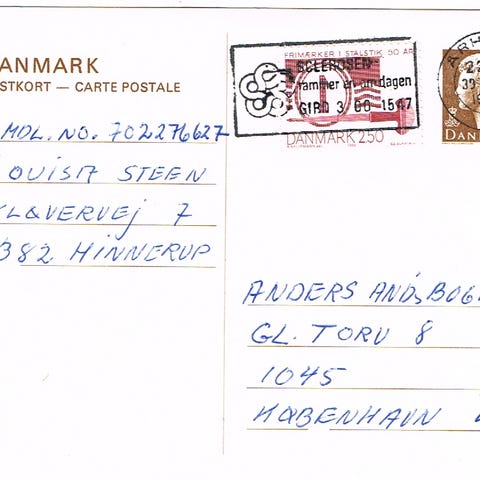 ANMARK
STKORT — CARTE POSTALE
MDL. NO. 702276627
OUISA STEEN
KLØVERVEJ 7
382 HINNERUP
FRIMÆRKER I STALSTIK 50 ÅR
SCLEROSEN
rammer èn om dagen
GIRO 3 00 15 47
DANMARK 250
DAN
ANDERS AND'S BOG
GL. TORV 8
1045
KØBENHAVN